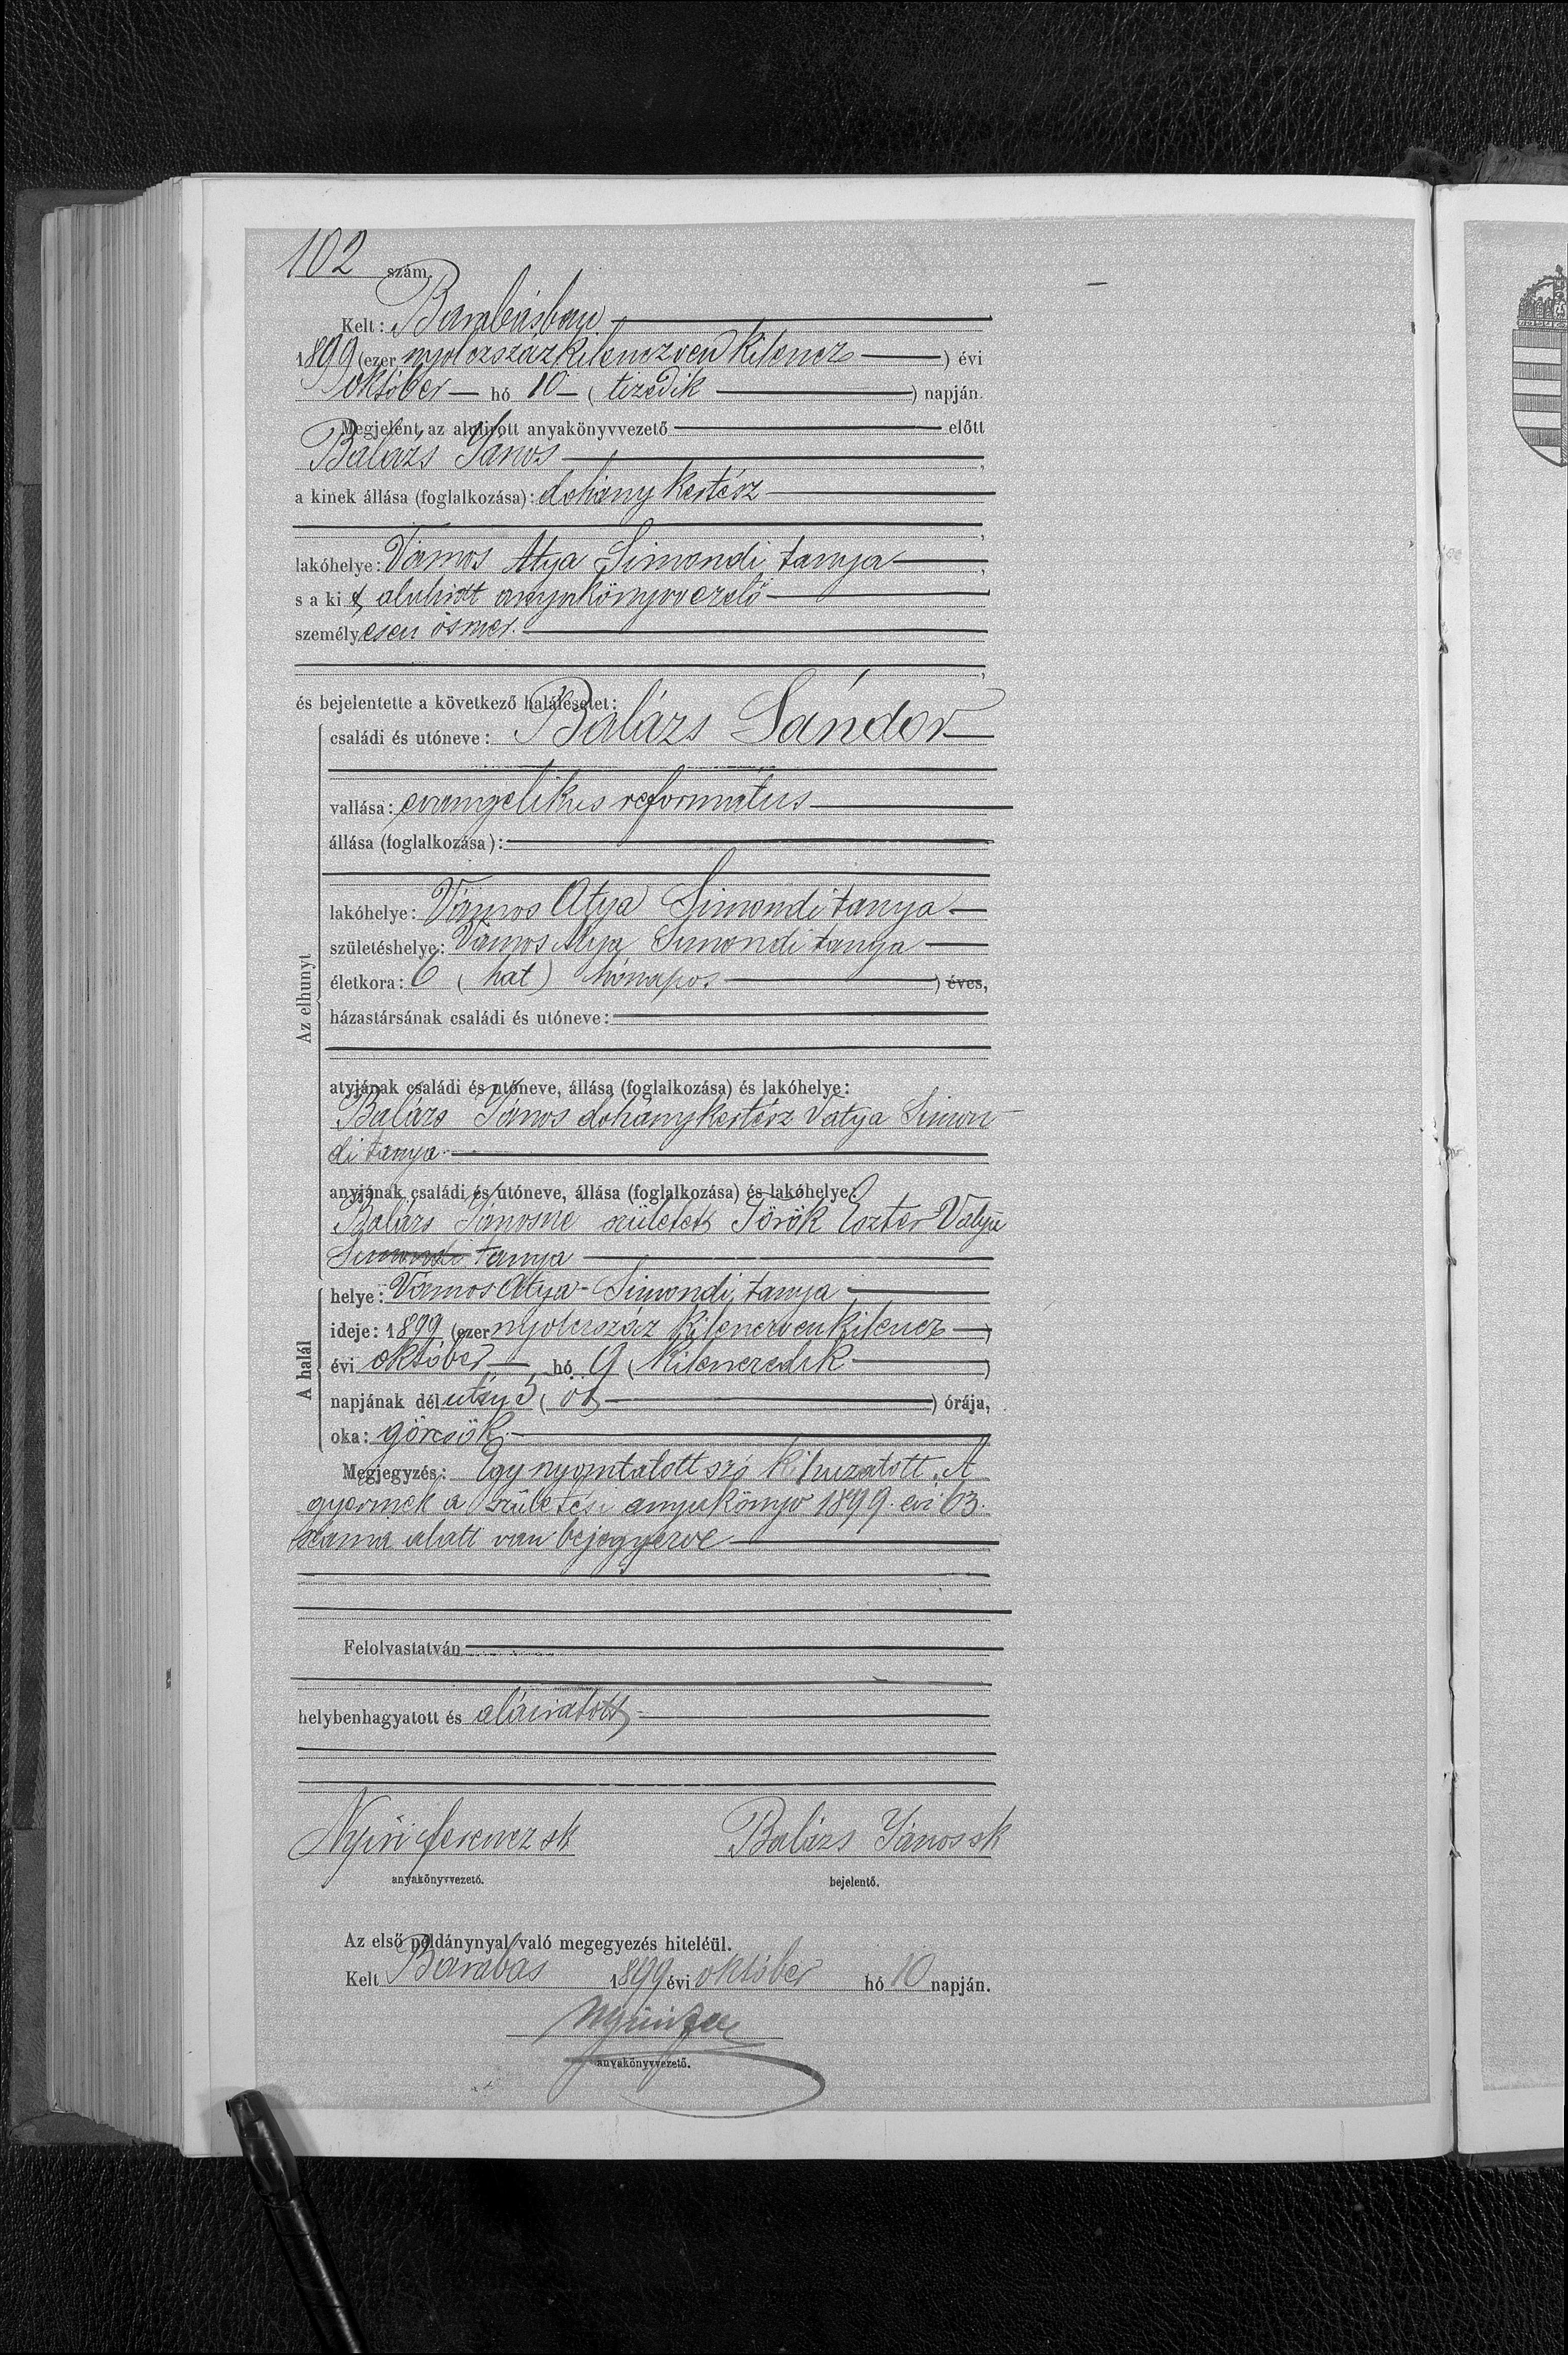 102 szám.
Kelt: Barabásban
1899 (ezer nyolczszázkilenczvenkilencz ) évi
október hó 10 ( tizedik ) napján.
Megjelent az alulirott anyakönyvvezető előtt
Balázs János ,
a kinek állása (foglalkozása): dohány kertész
,
lakóhelye: Vámos Atya Simondi tanya ,
s a ki t alulirott anyakönyvvezető
személyesen ösmer.
,
és bejelentette a következő halálesetet:
Az elhunyt
családi és utóneve: Balázs Sándor
vallása: evangelikus református
állása (foglalkozása):
lakóhelye: Vámos Atya Simondi tanya
születéshelye: Vámos Atya Simondi tanya
életkora: 6 ( hat) hónapos ) éves,
házastársának családi és utóneve:
atyjának családi és utóneve, állása (foglalkozása) és lakóhelye:
Balázs János dohánykertész Vatya Simon
di tanya
anyjának családi és utóneve, állása (foglalkozása) és lakóhelye:
Balázs Jánosné született Török Eszter Vatya
Simondi tanya
A halál
helye: Vámos Atya - Simondi tanya
ideje: 1899 (ezer nyolczszáz kilenczvenkilencz )
évi október hó 9 ( kilenczedik )
napjának délután 5 ( öt ) órája,
oka: görcsök.
Megjegyzés: Egy nyomtatott szó kihuzatott. A
gyermek a születési anyakönyv 1899. évi 63.
száma alatt van bejegyezve
Felolvastatván
helybenhagyatott és aláiratott
Nyiri Ferencz sk Balázs János sk
anyakönyvvezető. bejelentő.
Az első példánynyal való megegyezés hiteléül.
Kelt Barabás 1899 évi október hó 10 napján.
anyakönyvvezető.